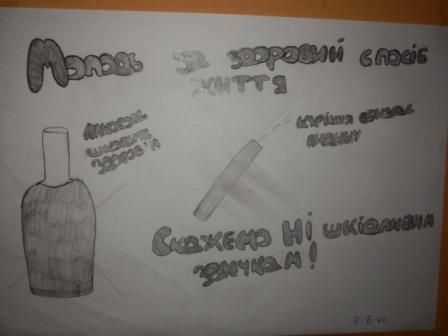 Молодь за здоровий спосіб
життя
Алкоголь
шкодить
здоров'ю
куріння
Скажемо Ні шкідливим
звичкам!